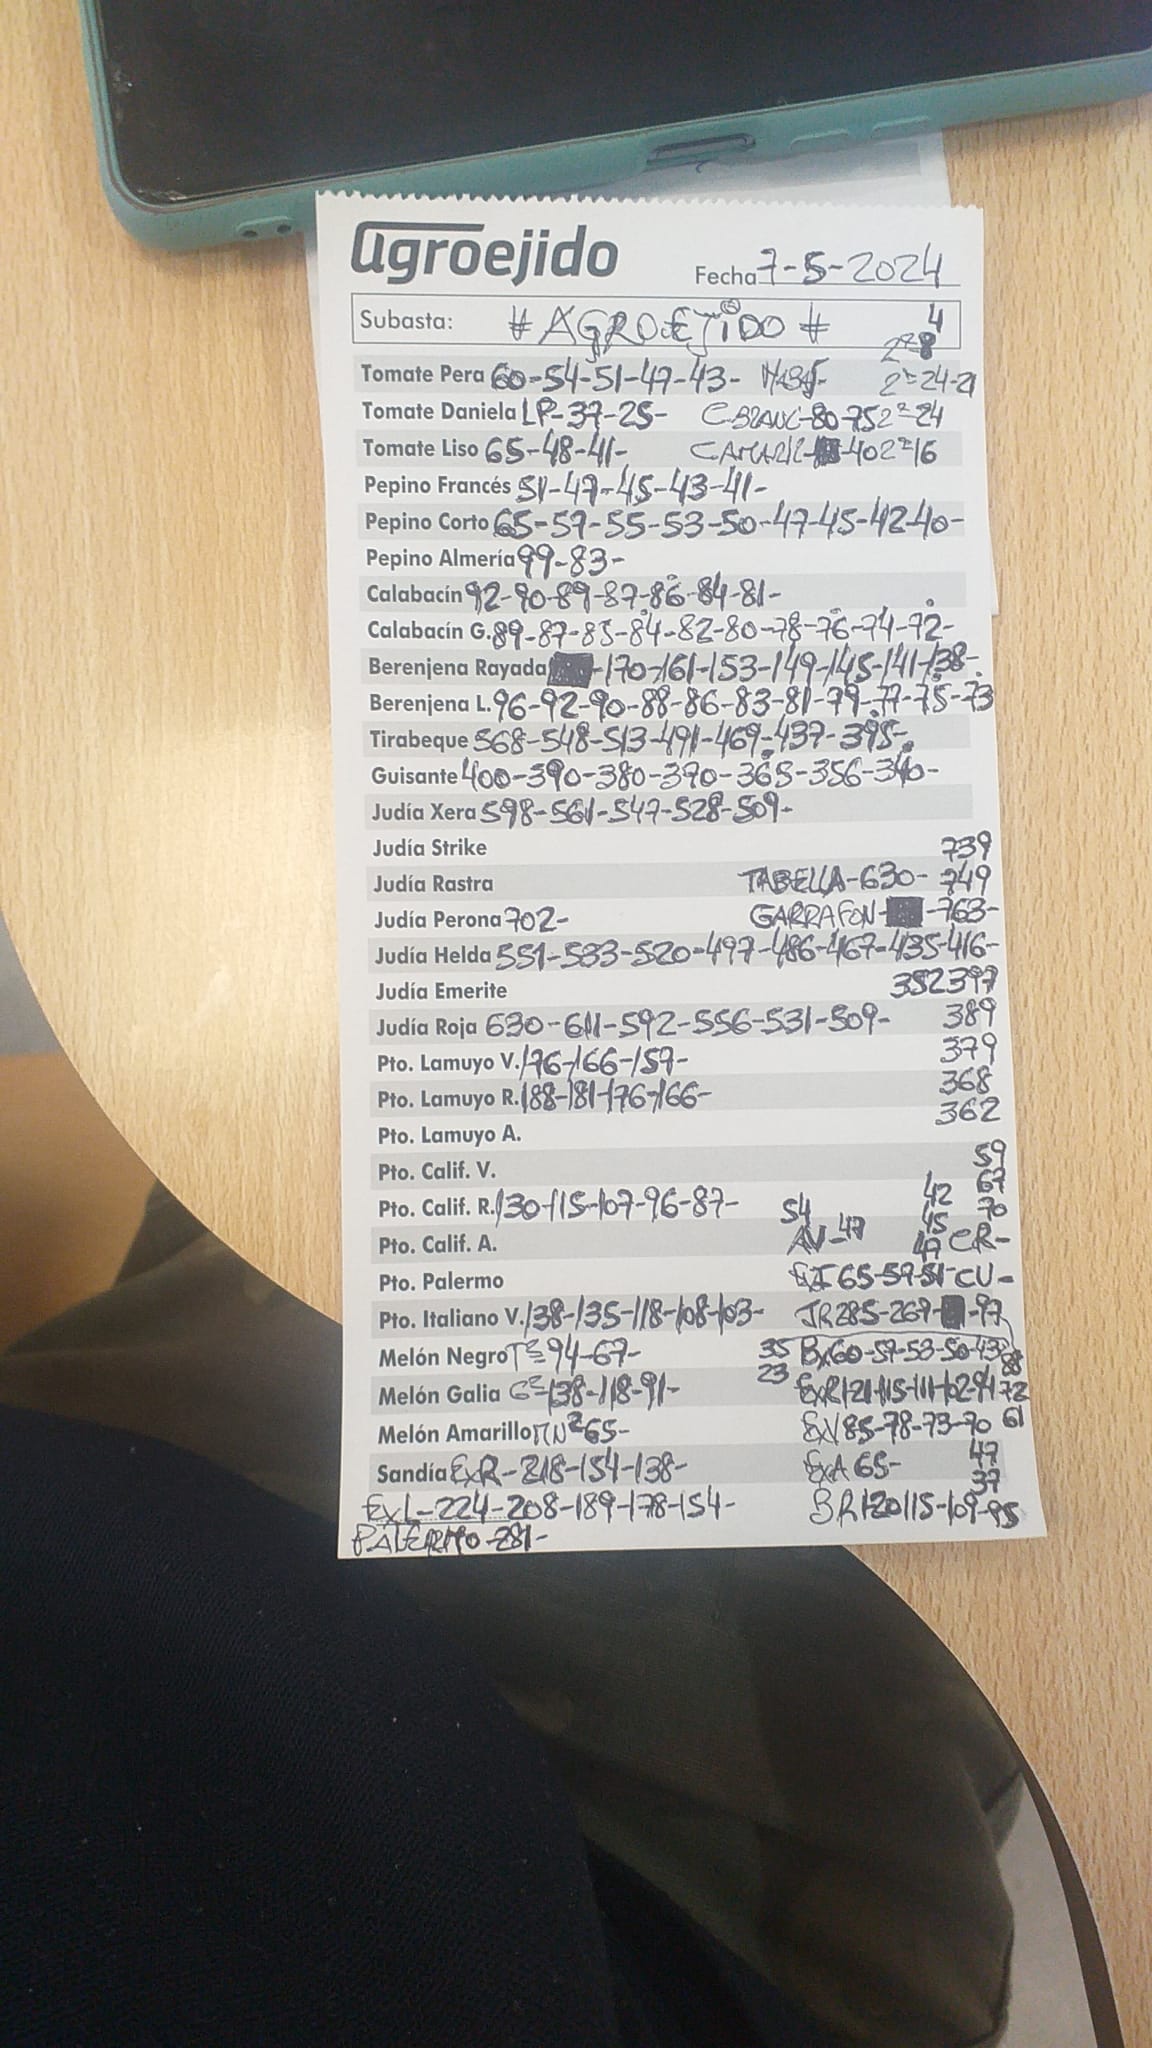 agroejido
Fecha 7-5-2024
Subasta: # AGROEJIDO # 4
2ª=8
Tomate Pera 60-54-51-47-43- 2ª=24-21
Tomate Daniela LP-37-25- C.BLANC-80-75 2ª=24
Tomate Liso 65-48-41- -40 2ª=16
Pepino Francés 51-47-45-43-41-
Pepino Corto 65-57-55-53-50-47-45-42-40-
Pepino Almería 99-83-
Calabacín 92-90-89-87-86-84-81-
Calabacín G. 89-87-85-84-82-80-78-76-74-72-
Berenjena Rayada -170-161-153-149-145-141-138-
Berenjena L. 96-92-90-88-86-83-81-79-77-75-73
Tirabeque 568-548-513-491-469-437-395-
Guisante 400-390-380-370-365-356-340-
Judía Xera 598-561-547-528-509-
Judía Strike 739
Judía Rastra TABELLA-630- 749
Judía Perona 702- GARRAFON- -763-
Judía Helda 551-533-520-497-486-467-435-416-
Judía Emerite 352 397
Judía Roja 630-611-592-556-531-509- 389
Pto. Lamuyo V. 176-166-157- 379
Pto. Lamuyo R. 188-181-176-166- 368
362
Pto. Lamuyo A.
Pto. Calif. V. 59
42 67
Pto. Calif. R. 130-115-107-96-87- 54 45 70
Pto. Calif. A. AV-47 47 CR-
Pto. Palermo 65-59-51- CU-
Pto. Italiano V. 138-135-118-108-103- JR 285-269- -97
Melón Negro Tª=94-67- 35 Bx60-57-53-50-43
23 88
Melón Galia Gª=138-118-91- ExR121-115-111-102-94 72
Melón Amarillo MNª65- ExV85-78-73-70 61
47
Sandía ExR-218-154-138- ExA 65- 37
ExL-224-208-189-178-154- BR120 115-109-95
PALERMO-281-